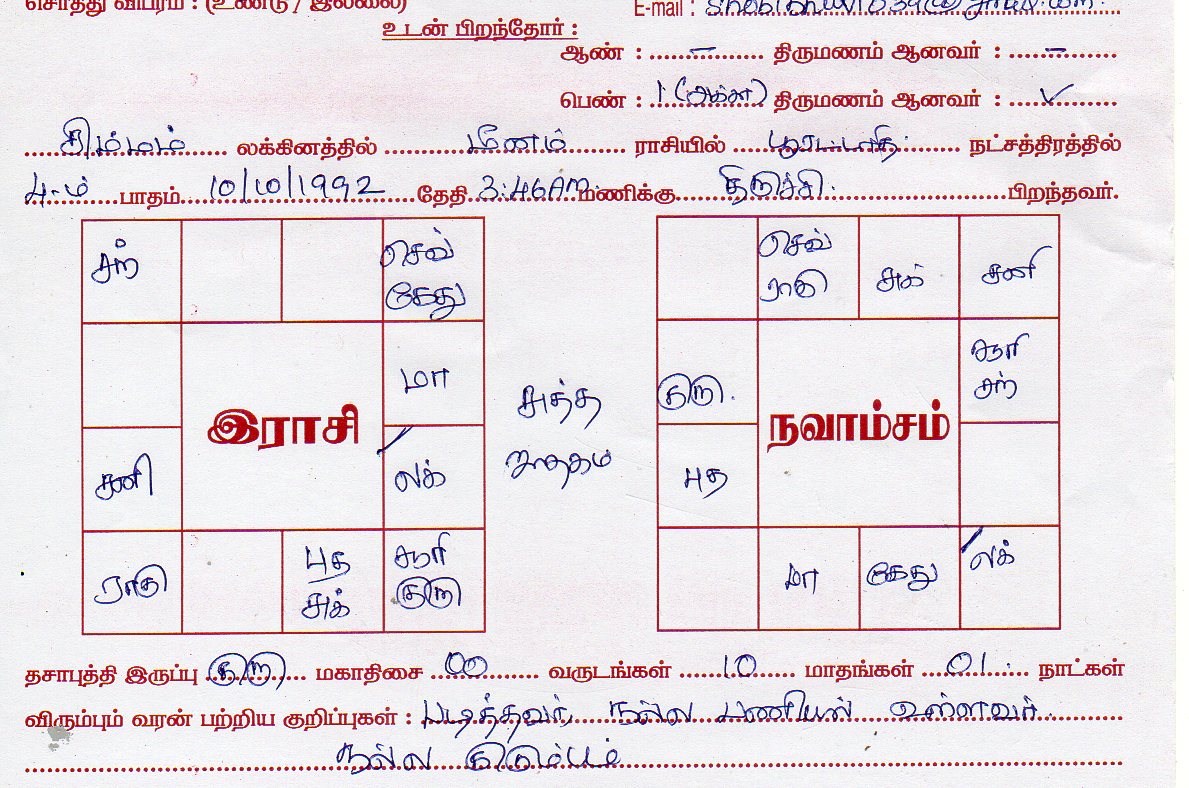 சொத்து விபரம் : (உண்டு / இல்லை) E-mail :
உடன் பிறந்தோர் :
ஆண் : – திருமணம் ஆனவர் : –
பெண் : 1 (அக்கா) திருமணம் ஆனவர் : ✓
சிம்மம் லக்கினத்தில் மீனம் ராசியில் பூரட்டாதி நட்சத்திரத்தில்
4-ம் பாதம் 10/10/1992 தேதி 3:46AM மணிக்கு திருச்சி பிறந்தவர்.
சந் செவ் கேது
மா
இராசி
சனி லக்
ராகு புத சுக் சூரி குரு
சுத்த ஜாதகம்
செவ் ராகு சுக் சனி
குரு சூரி சந்
நவாம்சம்
புத
மா கேது லக்
தசாபுத்தி இருப்பு குரு மகாதிசை 00 வருடங்கள் 10 மாதங்கள் 01 நாட்கள்
விரும்பும் வரன் பற்றிய குறிப்புகள் : படித்தவர், நல்ல பணியில் உள்ளவர்
நல்ல குடும்பம்